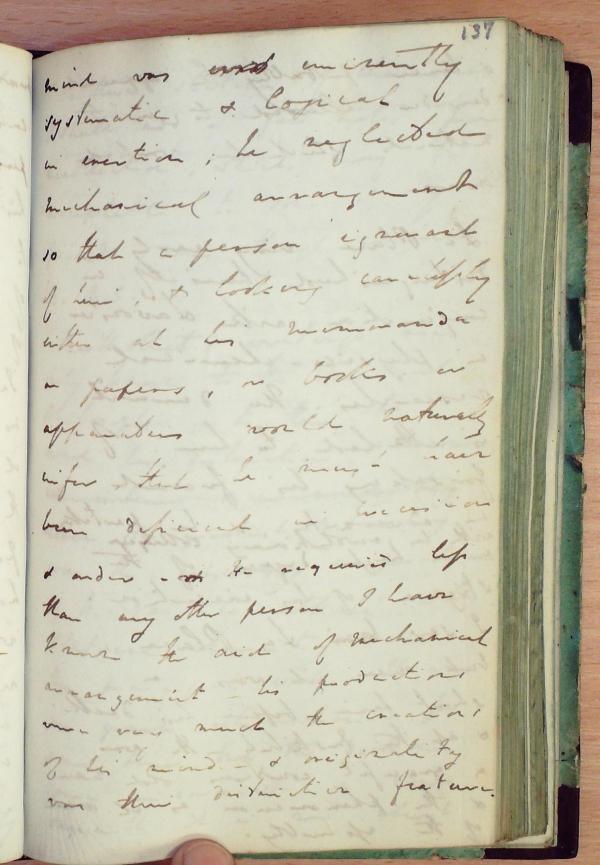 137
mind was eminently
systematic & logical
in exertion; he neglected
mechanical arrangement
so that a person ignorant
of him, & looking carelessly
either at his memoranda
or papers, or books or
apparatus would naturally
infer that he must have
been deficient in precision
& order - he required less
than any other person I have
known the aid of mechanical
arrangement - his productions
were very much the creations
of his mind - & originality
was their distinctive feature.